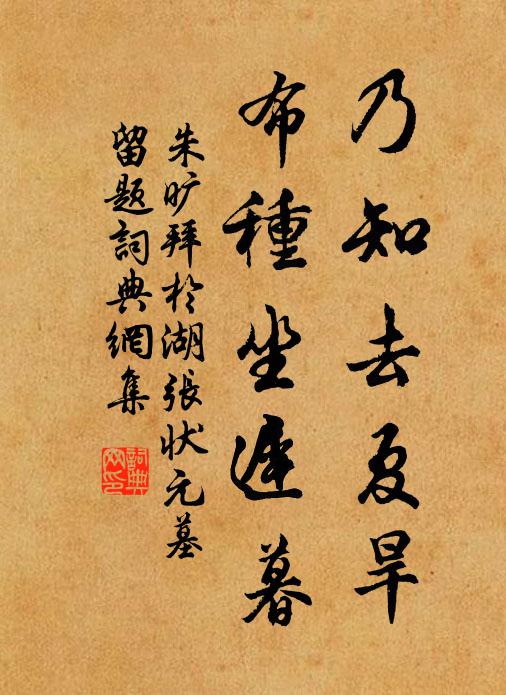 乃知去夏旱
布種坐遲暮
朱旷拜於湖張状元墓
留题詞典網集
詞典
網印